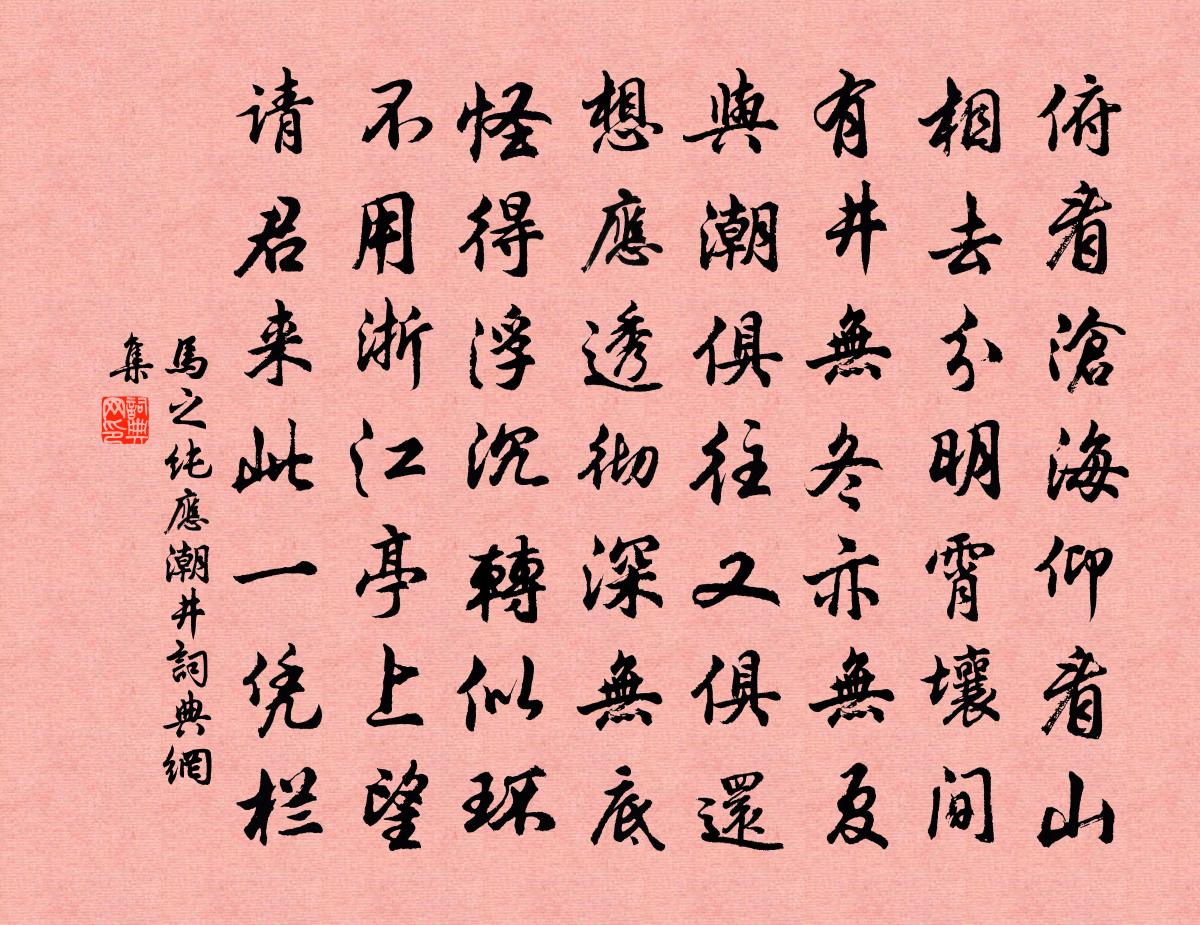 俯看滄海仰看山
相去分明霄壤间
有井無冬亦無夏
與潮俱往又俱還
想應透彻深無底
怪得浮沉轉似环
不用浙江亭上望
请君来此一凭栏
馬之纯應潮井詞典網
集
詞典
网印